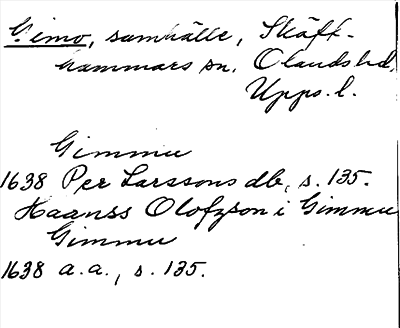 Gimo, samhälle, Skäft-
hammars sn, Olands hd,
Upps. l.
Gimmu
1638 Per Larssons db, s. 135.
Haanss Olofzson i Gimmu
Gimmu
1638 a.a., s. 135.